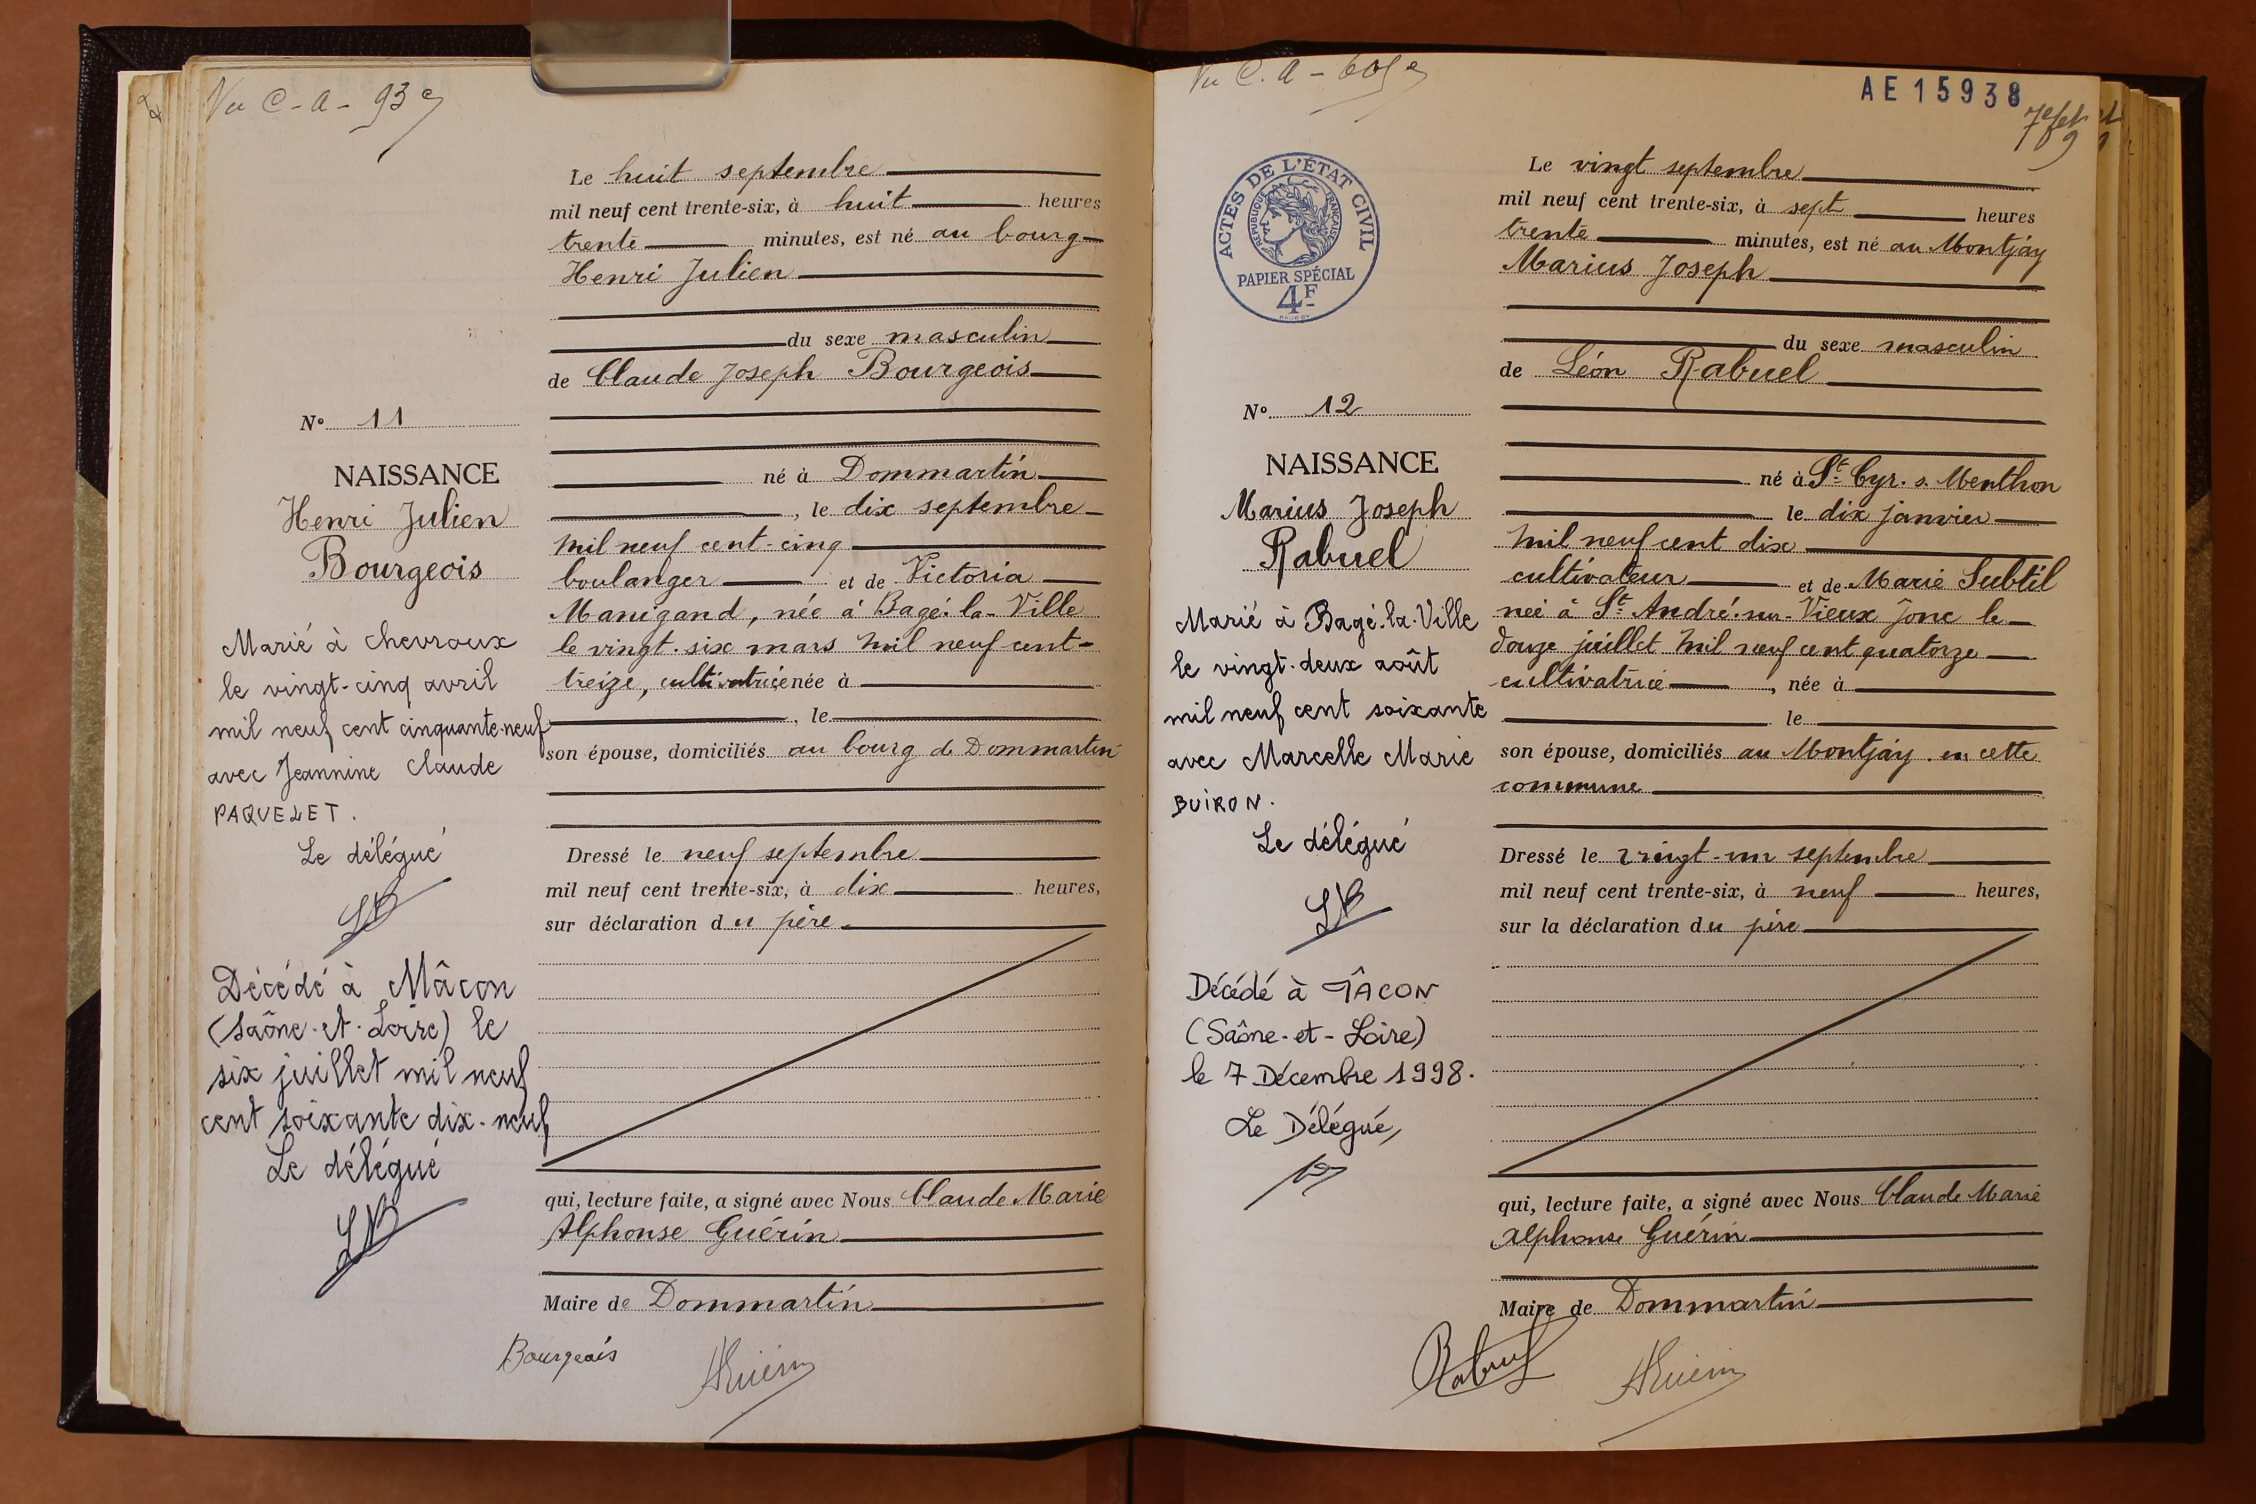 Vu C-A- 93e
Le huit septembre
mil neuf cent trente-six, à huit heures
trente minutes, est né au bourg
Henri Julien
du sexe masculin
de Claude Joseph Bourgeois
N° 11
NAISSANCE
Henri Julien
Bourgeois
né à Dommartin
, le dix septembre
mil neuf cent-cinq
boulanger et de Victoria
Manigand, née à Bagé-la-Ville
le vingt-six mars mil neuf cent-
treize, cultivatrice née à
, le
son épouse, domiciliés au bourg de Dommartin
Marié à Chevroux
le vingt-cinq avril
mil neuf cent cinquante-neuf
avec Jeannine Claude
PAQUELET.
Le délégué
Dressé le neuf septembre
mil neuf cent trente-six, à dix heures,
sur déclaration du père
Décédé à Mâcon
(Saône-et-Loire) le
six juillet mil neuf
cent soixante dix-neuf
Le délégué
qui, lecture faite, a signé avec Nous Claude Marie
Alphonse Guérin
Maire de Dommartin
Bourgeois
AGuérin
Vu C. A -
AE15938
ACTES DE L'ÉTAT CIVIL
RÉPUBLIQUE FRANÇAISE
PAPIER SPÉCIAL
4F
Le vingt septembre
mil neuf cent trente-six, à sept heures
trente minutes, est né au Montjay
Marius Joseph
du sexe masculin
de Léon Rabuel
N° 12
NAISSANCE
Marius Joseph
Rabuel
né à St Cyr. s. Menthon
le dix janvier
mil neuf cent dix
cultivateur et de Marie Subtil
née à St André-sur-Vieux Jonc le
douze juillet mil neuf cent quatorze
cultivatrice , née à
le
son épouse, domiciliés au Montjay en cette
commune
Marié à Bagé-la-Ville
le vingt-deux août
mil neuf cent soixante
avec Marcelle Marie
BUIRON.
Le délégué
Dressé le vingt-un septembre
mil neuf cent trente-six, à neuf heures,
sur la déclaration du père
Décédé à MÂCON
(Saône-et-Loire)
le 7 Décembre 1998.
Le Délégué,
qui, lecture faite, a signé avec Nous Claude Marie
Alphonse Guérin
Maire de Dommartin
Rabuel
AGuérin